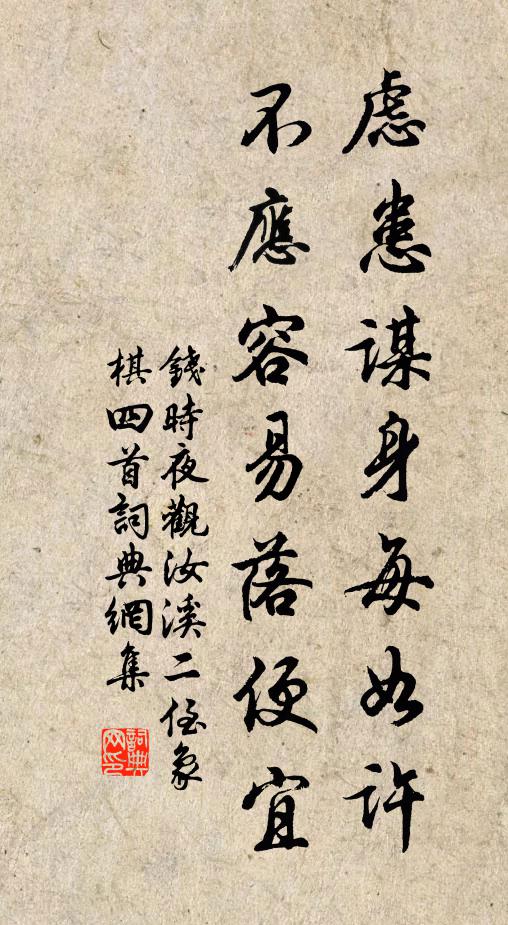 慮患謀身每如許
不應容易落便宜
錢時夜觀汝溪二侄象
棋四首詞典網集
詞典
网印